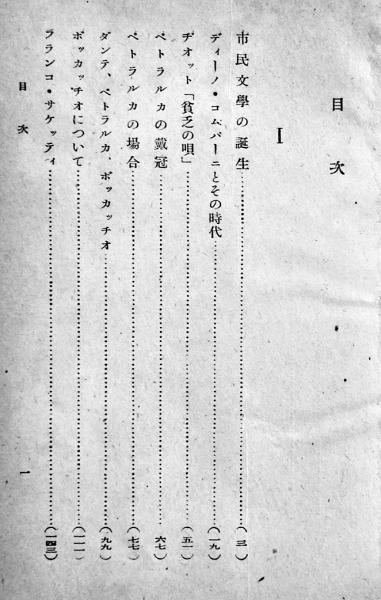 目次
I
市民文學の誕生……(三)
ディーノ・コムパーニとその時代……(一九)
ヂオット「貧乏の唄」……(五一)
ペトラルカの戴冠……(六七)
ペトラルカの場合……(七七)
ダンテ、ペトラルカ、ボッカッチオ……(九九)
ボッカッチオについて……(一一一)
フランコ・サケッティ……(一四三)
目次
一